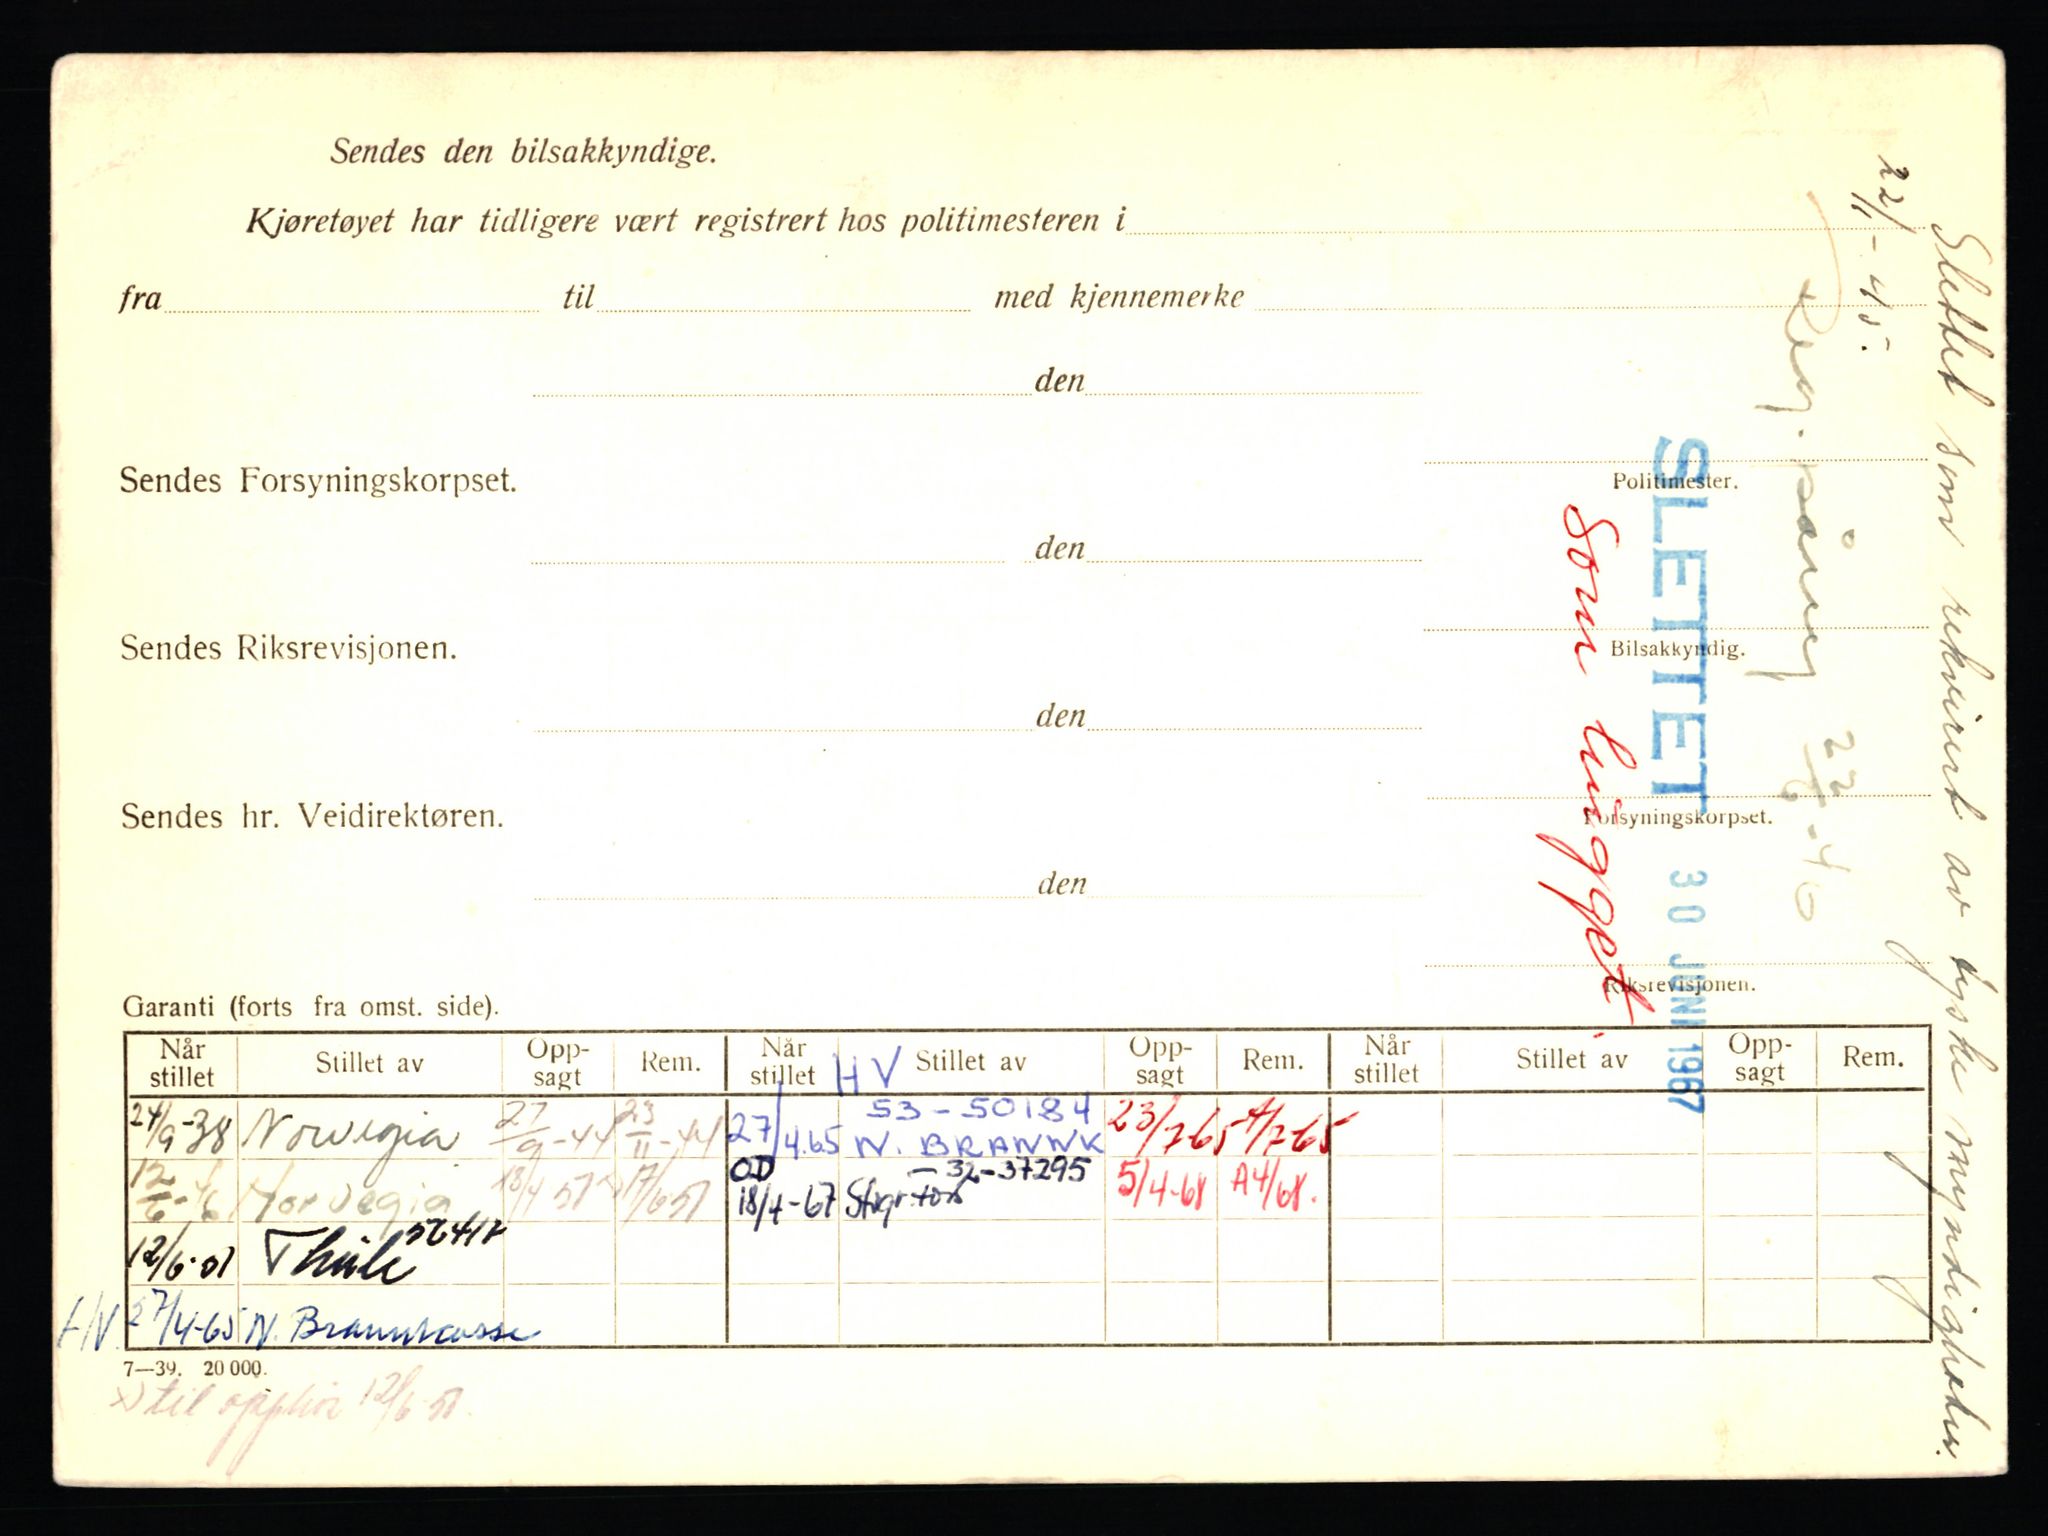 Sendes den bilsakkyndige.
Kjøretøyet har tidligere vært registrert hos politimesteren i
fra til med kjennemerke
den
Politimester.
Sendes Forsyningskorpset.
den
Bilsakkyndig.
Sendes Riksrevisjonen.
den
Forsyningskorpset.
Sendes hr. Veidirektøren.
den
Riksrevisjonen.
22/11-45.
Slettet som rekvirert av tyske myndigheter.
Reg. påny 22/6-40
SLETTET 30 JUNI 1967
Som hugget.
Garanti (forts fra omst. side).
Når stillet Stillet av Opp-sagt Rem. Når stillet Stillet av Opp-sagt Rem. Når stillet Stillet av Opp-sagt Rem.
24/9-38 Norvegia 27/9-44 23/11-44 27/4.65 HV 53-50184 N. BRANNK 23/7-65 4/7-65
12/6-46 Norvegia 18/4-51 x) 17/6 51 OD 18/4-67 Stvgr.ton -32-37295 5/4-68 A4/68.
12/6-51 Thule
HV. 27/4-65 N. Brannkasse
7—39. 20 000.
x) til opphør 12/6-51.